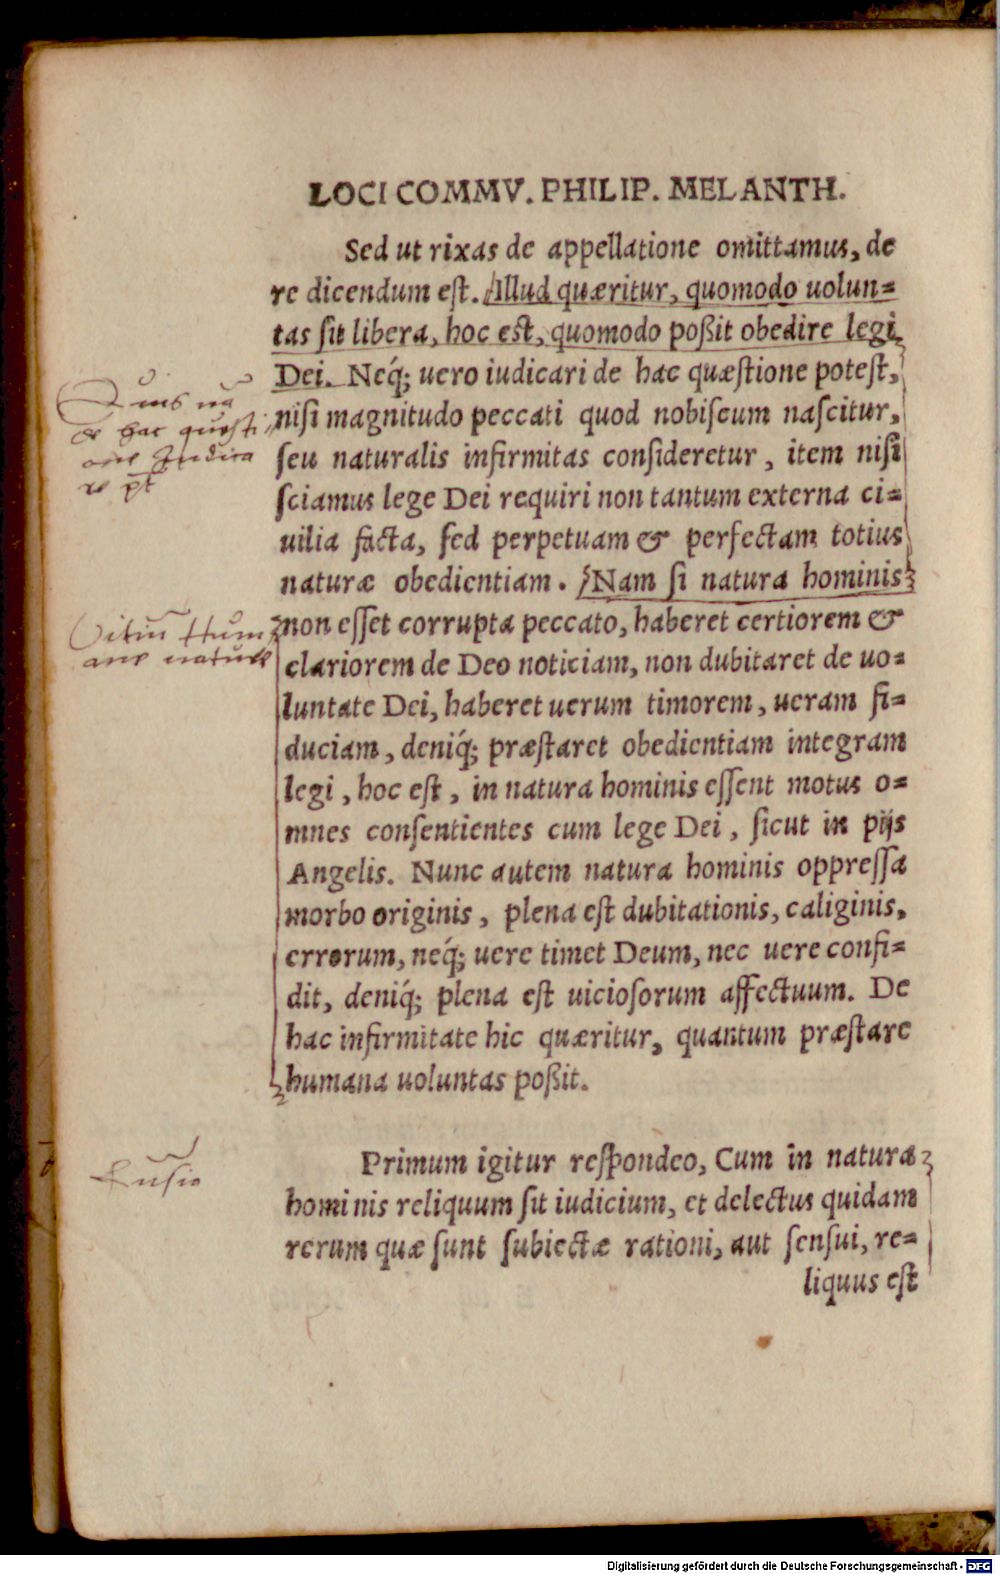 LOCI COMMV. PHILIP. MELANTH.
Sed ut rixas de appellatione omittamus, de
re dicendum est. Illud quæritur, quomodo uolun=
tas ſit libera, hoc est, quomodo poßit obedire legi
Dei. Neq́; uero iudicari de hac quæſtione poteſt,
niſi magnitudo peccati quod nobiſcum naſcitur,
ſeu naturalis infirmitas conſideretur, item niſi
ſciamus lege Dei requiri non tantum externa ci=
uilia facta, ſed perpetuam & perfectam totius
naturæ obedientiam. Nam ſi natura hominis
non eſſet corrupta peccato, haberet certiorem &
clariorem de Deo noticiam, non dubitaret de uo=
luntate Dei, haberet uerum timorem, ueram fi=
duciam, deniq́; præſtaret obedientiam integram
legi, hoc eſt, in natura hominis eſſent motus o=
mnes conſentientes cum lege Dei, ſicut in pijs
Angelis. Nunc autem natura hominis oppreſſa
morbo originis, plena eſt dubitationis, caliginis,
errorum, neq́; uere timet Deum, nec uere confi=
dit, deniq́; plena eſt uicioſorum affectuum. De
hac infirmitate hic quæritur, quantum præſtare
humana uoluntas poßit.
Primum igitur reſpondeo, Cum in natura
hominis reliquum ſit iudicium, et delectus quidam
rerum quæ ſunt ſubiectæ rationi, aut ſenſui, re=
liquus eſt
de hac quęſti
one Iudica
re
Vitiū Hum
ane nature
Digitalisierung gefördert durch die Deutsche Forschungsgemeinschaft - DFG